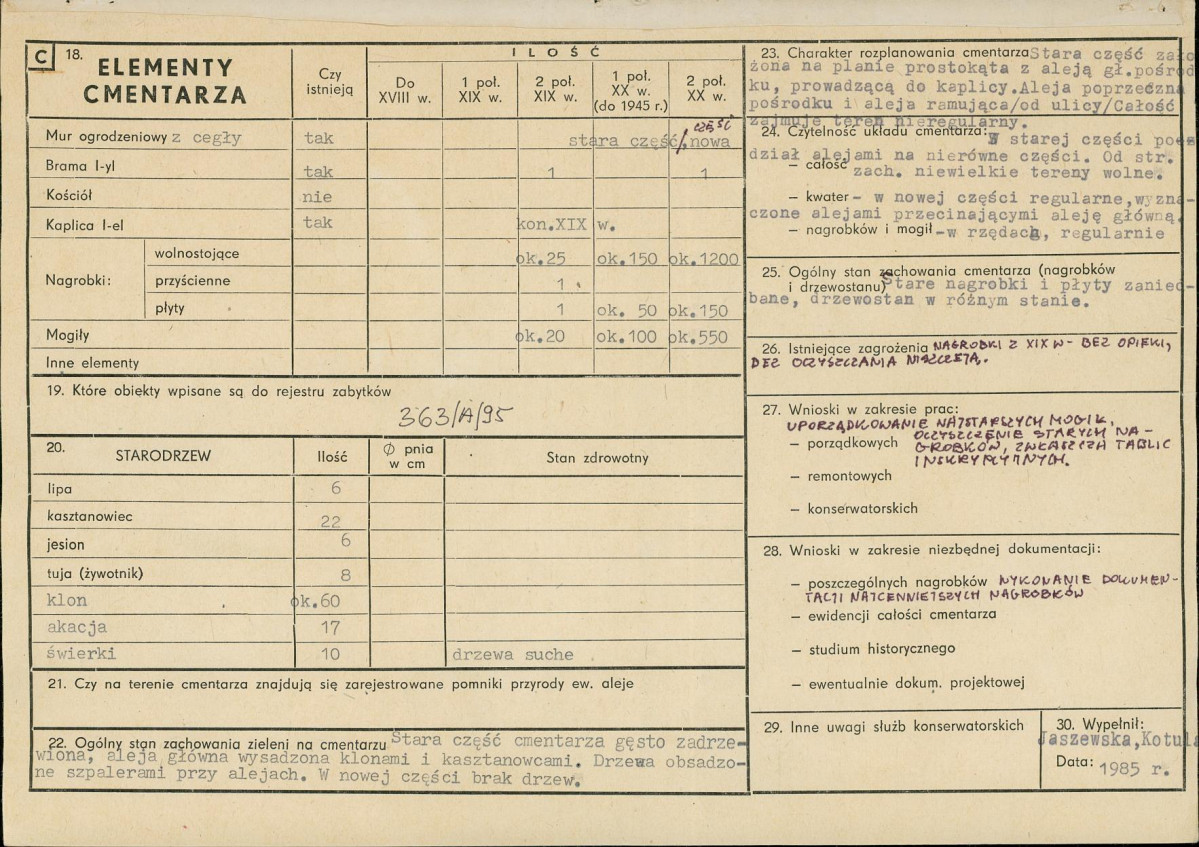 C 18. ELEMENTY CMENTARZA
Czy istnieją
ILOŚĆ
Do XVIII w.
1 poł. XIX w.
2 poł. XIX w.
1 poł. XX w. (do 1945 r.)
2 poł. XX w.
Mur ogrodzeniowy z cegły tak stara część/, część nowa
Brama I-yl tak 1 1
Kościół nie
Kaplica I-el tak kon.XIX w.
Nagrobki:
wolnostojące ok.25 ok.150 ok.1200
przyścienne 1
płyty 1 ok. 50 ok.150
Mogiły ok.20 ok.100 ok.550
Inne elementy
19. Które obiekty wpisane są do rejestru zabytków
363/A/95
20. STARODRZEW Ilość Ø pnia w cm Stan zdrowotny
lipa 6
kasztanowiec 22
jesion 6
tuja (żywotnik) 8
klon ok.60
akacja 17
świerki 10 drzewa suche
21. Czy na terenie cmentarza znajdują się zarejestrowane pomniki przyrody ew. aleje
22. Ogólny stan zachowania zieleni na cmentarzu Stara część cmentarza gęsto zadrze-
wiona, aleja główna wysadzona klonami i kasztanowcami. Drzewa obsadzo-
ne szpalerami przy alejach. W nowej części brak drzew.
23. Charakter rozplanowania cmentarza Stara część zało
żona na planie prostokąta z aleją gł.pośrod
ku, prowadzącą do kaplicy.Aleja poprzeczna
pośrodku i aleja ramująca/od ulicy/Całość
zajmuje teren nieregularny.
24. Czytelność układu cmentarza: W starej części
dział alejami na nierówne części. Od str.
– całość zach. niewielkie tereny wolne.
– kwater – w nowej części regularne,wyzna
czone alejami przecinającymi aleję główną.
– nagrobków i mogił -w rzędach, regularnie
25. Ogólny stan zachowania cmentarza (nagrobków
i drzewostanu) Stare nagrobki i płyty zanied-
bane, drzewostan w różnym stanie.
26. Istniejące zagrożenia NAGROBKI Z XIX W - BEZ OPIEKI,
BEZ OCZYSZCZANIA NISZCZEJĄ.
27. Wnioski w zakresie prac:
UPORZĄDKOWANIE NAJSTARSZYCH MOGIŁ,
– porządkowych OCZYSZCZENIE STARYCH NA-
GROBKÓW, ZWŁASZCZA TABLIC
INSKRYPCYJNYCH.
– remontowych
– konserwatorskich
28. Wnioski w zakresie niezbędnej dokumentacji:
– poszczególnych nagrobków WYKONANIE DOKUMEN-
TACJI NAJCENNIEJSZYCH NAGROBKÓW
– ewidencji całości cmentarza
– studium historycznego
– ewentualnie dokum. projektowej
29. Inne uwagi służb konserwatorskich
30. Wypełnił:
Jaszewska,Kotula
Data: 1985 r.